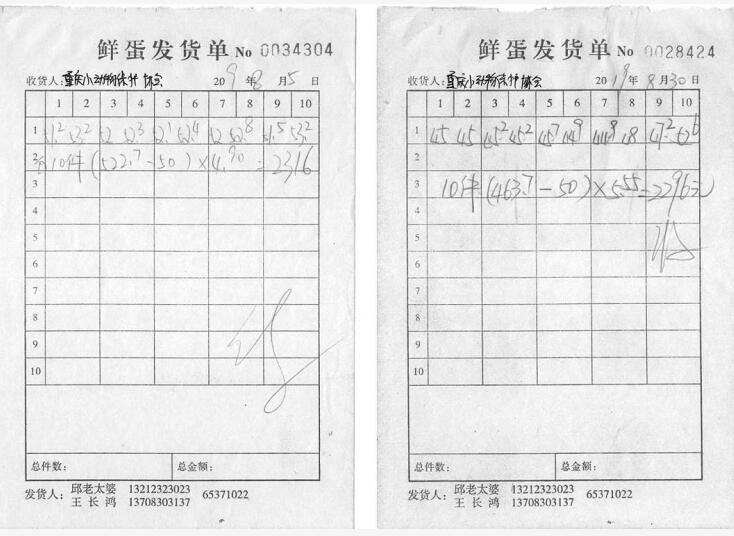 鲜蛋发货单 No 0034304
收货人:重庆小动物保护协会 2019年8月5日
1 2 3 4 5 6 7 8 9 10
1
2 10件(522.7-50)×4.90=2316
3
4
5
6
7
8
9
10
总件数: 总金额:
发货人: 邱老太婆 13212323023 65371022
王长鸿 13708303137
鲜蛋发货单 No 0028424
收货人:重庆小动物保护协会 2019年8月30日
1 2 3 4 5 6 7 8 9 10
1 45 45 45.2 45.2 45.7 44.9 44.9 48 47.2 52.6
2
3 10件(463.7-50)×5.55=2296元
4
5
6
7
8
9
10
总件数: 总金额:
发货人: 邱老太婆 13212323023 65371022
王长鸿 13708303137